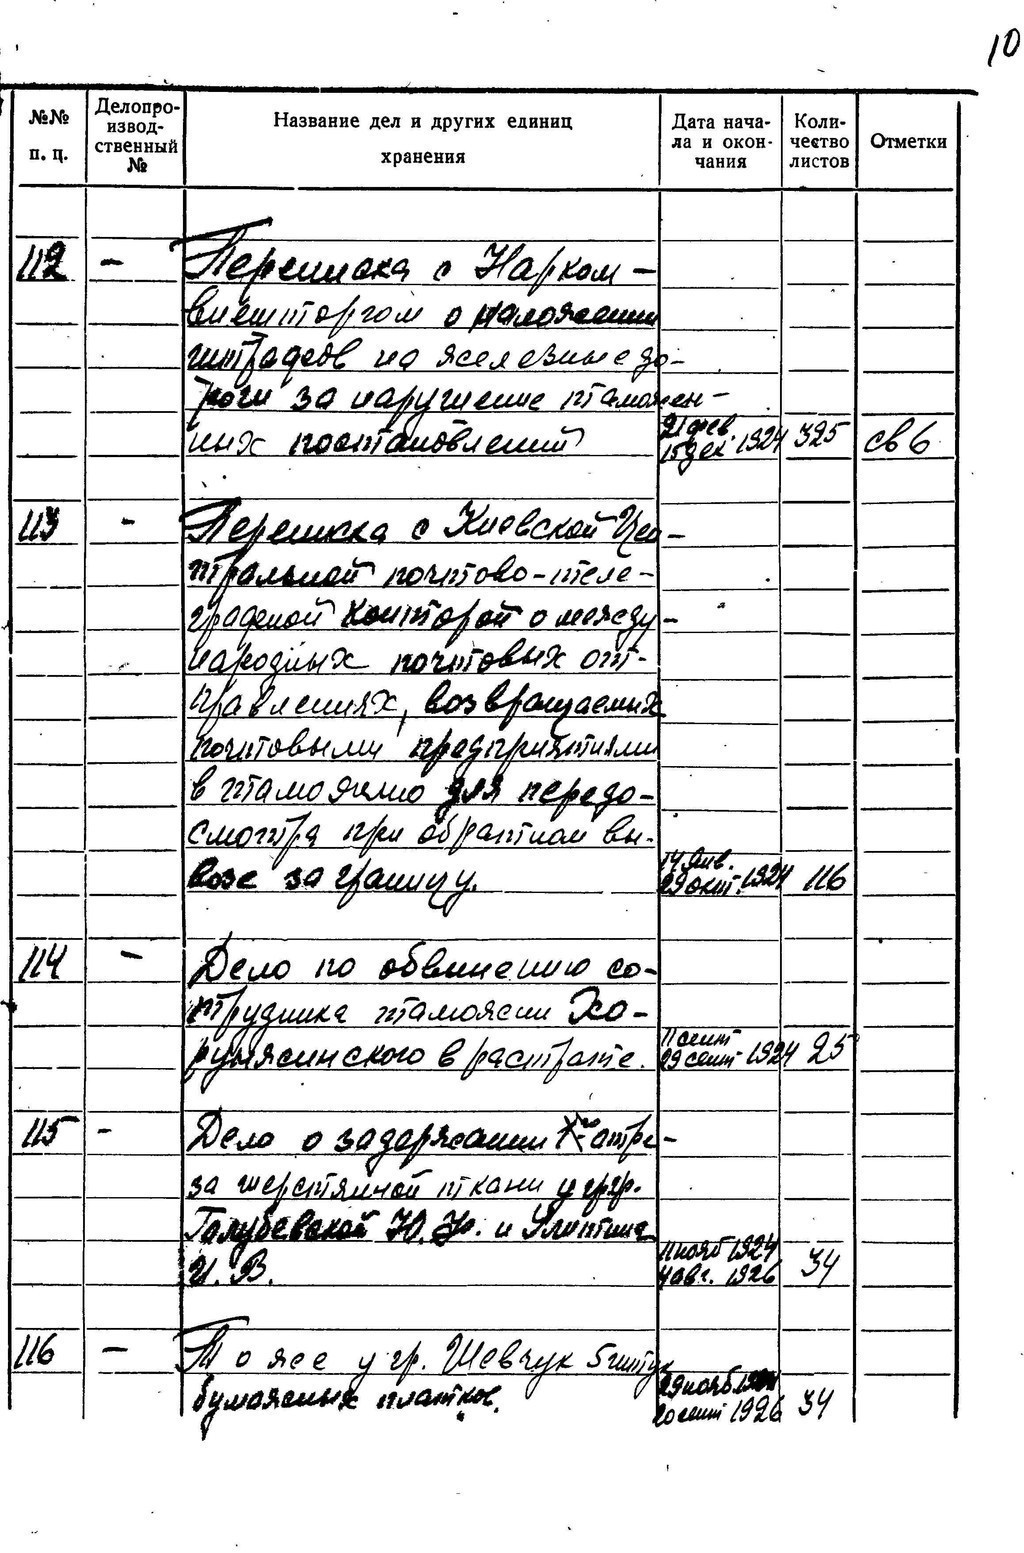 10
№№ п. ц. Делопроизводственный № Название дел и других единиц хранения Дата начала и окончания Количество листов Отметки
112 – Переписка с Нарком-
внешторгом о наложении
штрафов на железные до-
роги за нарушение таможен-
ных постановлений 21 фев. 15 дек. 1924 325 св 6
113 – Переписка с Киевской Цен-
тральной почтово-теле-
графной конторой о между-
народных почтовых от-
правлениях, возвращаемых
почтовыми предприятиями
в таможню для передо-
смотра при обратном вы-
возе за границу. 14 янв. 29 окт. 1924 116
114 – Дело по обвинению со-
трудника таможни Хо-
ружинского в растрате. 11 сент 29 сент 1924 25
115 – Дело о задержании отре-
за шерстяной ткани у гр.гр.
Голубевской Ю. и
И. В. 11 нояб 1924 4 авг. 1926 34
116 – То же у гр. Шевчук 5 штук
бумажных платков. 29 нояб 1924 20 сент 1926 34